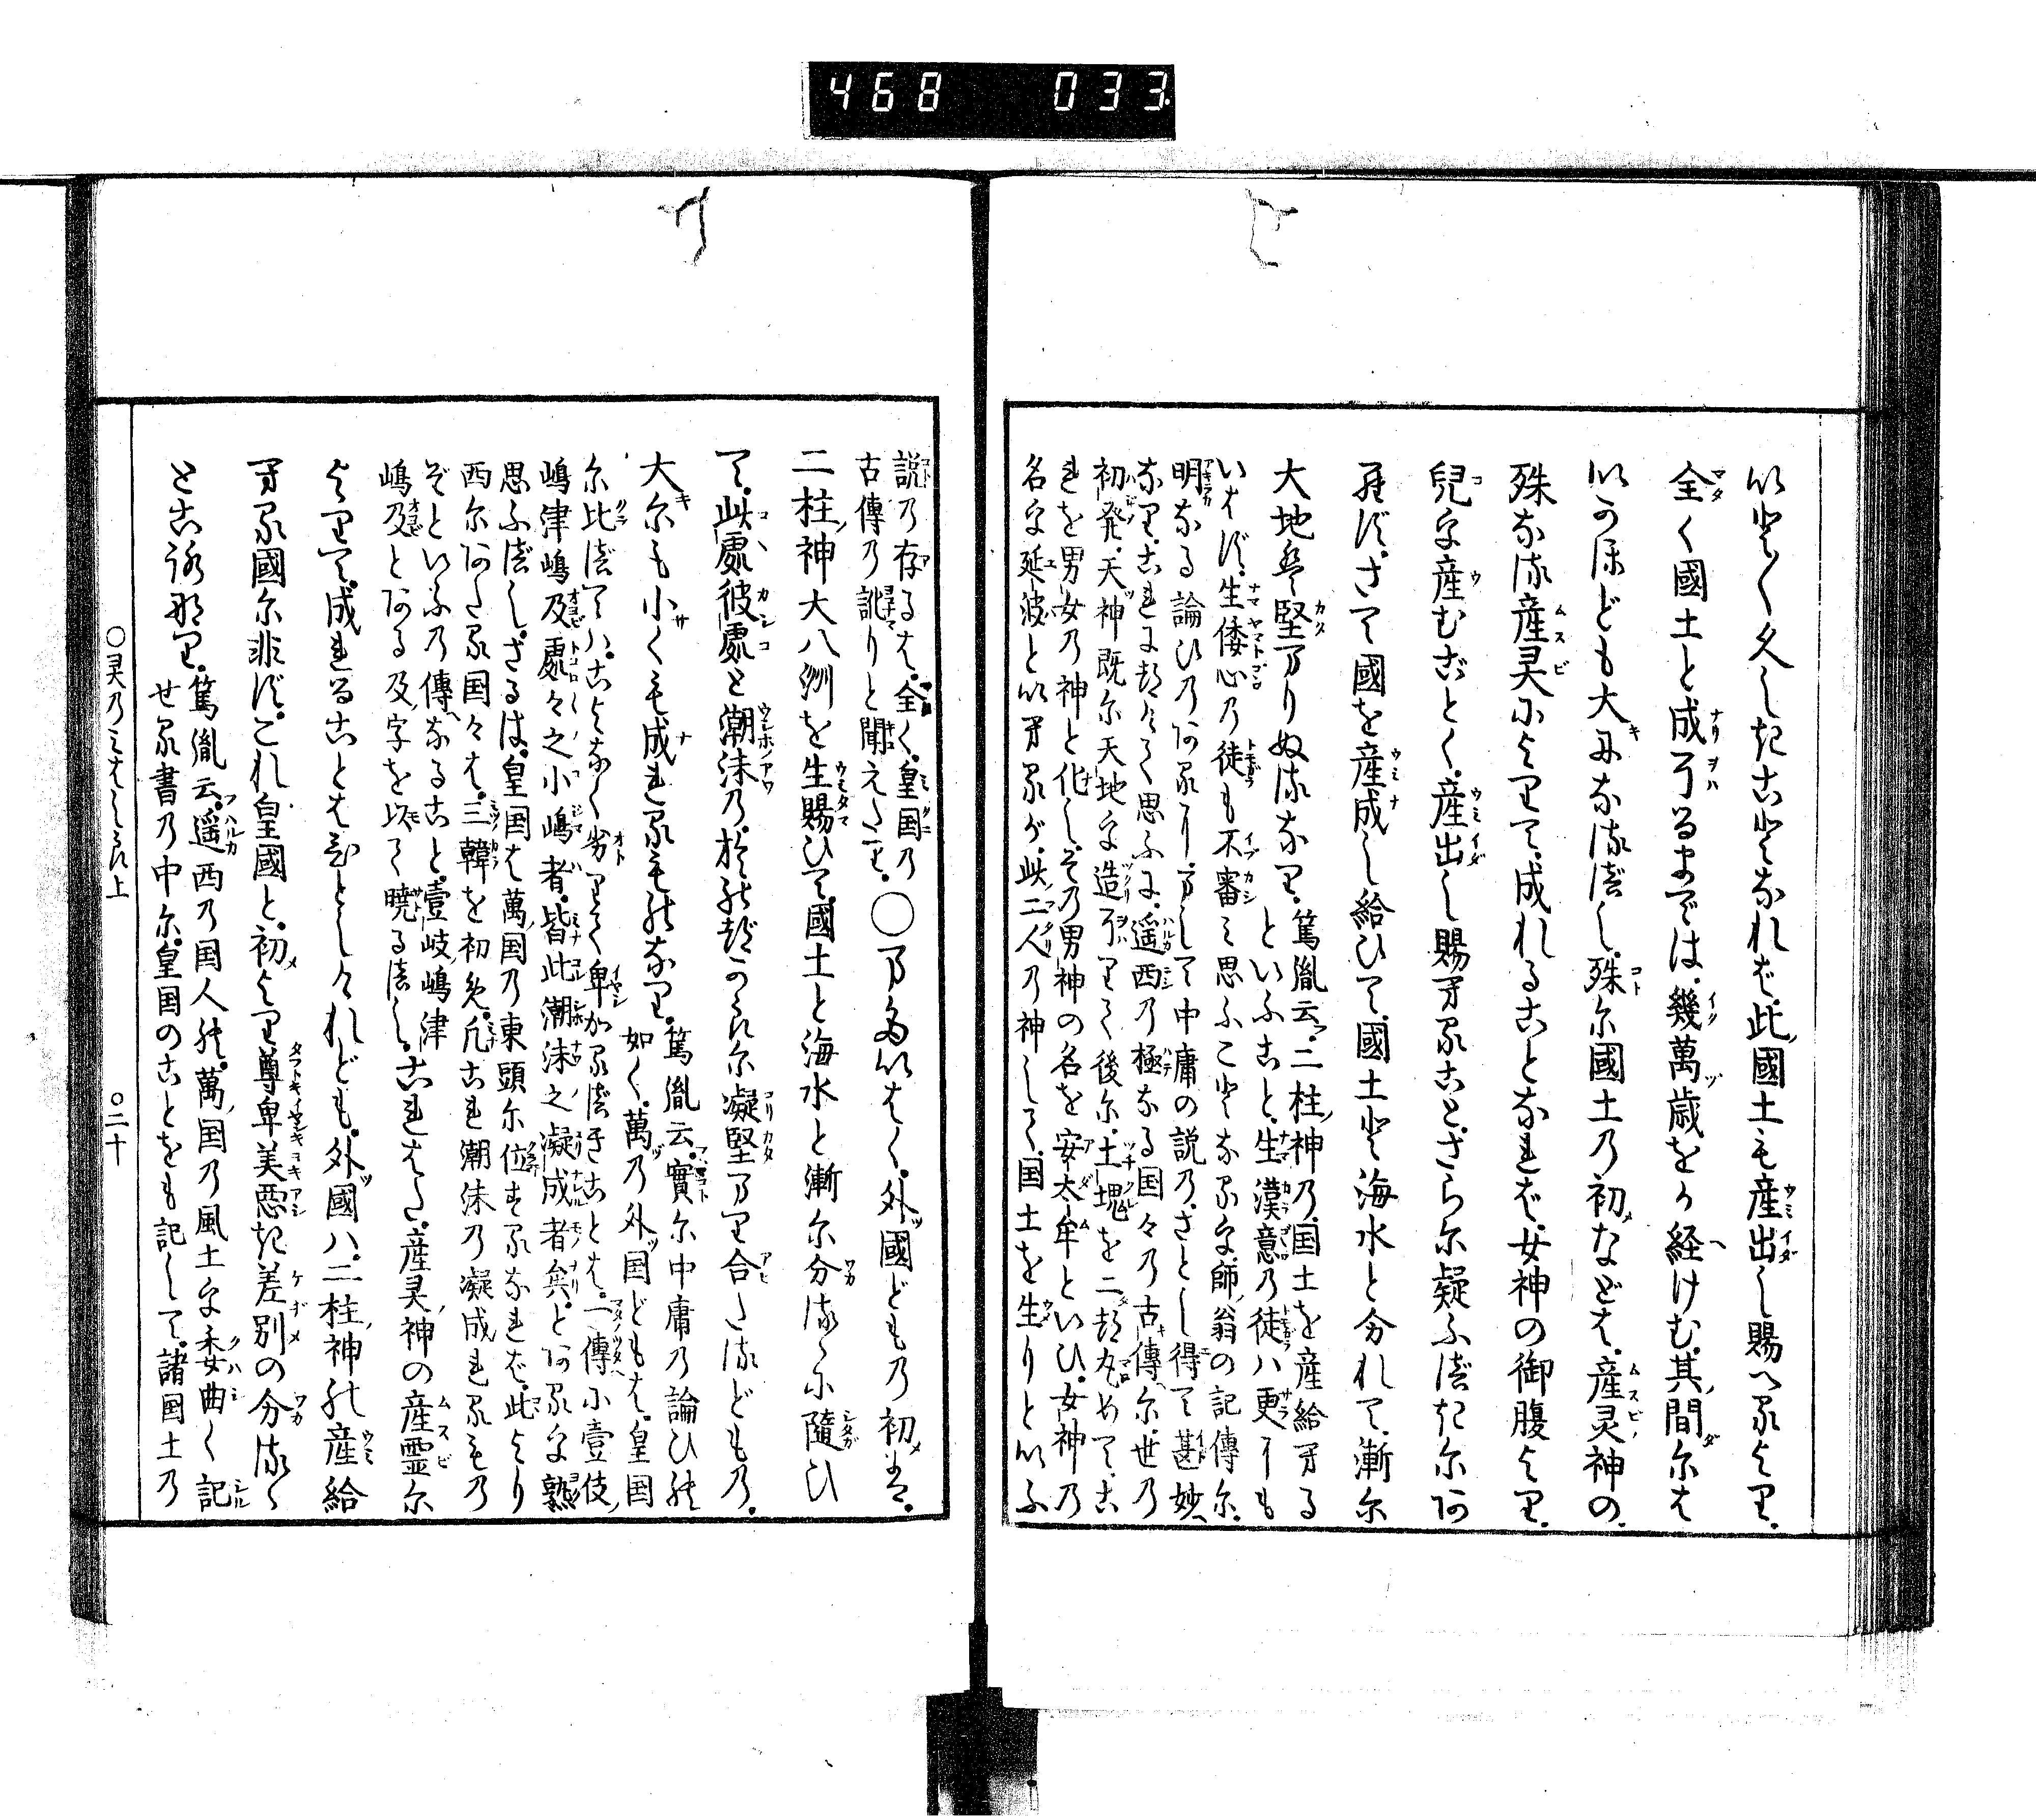 468 033
いと〱久しきことなれば、此国土も産出し賜へるより、
全く國土と成了るまでは、幾萬歳をか経けむ、其間には
いかほども大になるべし、殊に國土の初などは、産灵神の
殊なる産灵によりて、成れることなれば、女神の御腹より、
兒を産むごとく、産出し賜へること、さらに疑ふべきにあ
らず、さて國を産成し給ひて、國土と海水と分れて、漸に
大地は堅まりぬるなり、
篤胤云、二柱神の、国土を産給へる
といふこと、生漢意の徒ハ更にも
いはず、生倭心の徒も、不審み思ふことなるを、師翁の記傳に、
明なる論ひのあるに、まして中庸の説の、さとし得て甚妙
なり、これに就て思ふに、遥西の極なる国々の古傳に、世の
初発、天神既に天地を造了りて後に、土塊を二つ丸めて、こ
れを男女の神と化し、その男神の名を安太牟といひ、女神の
名を延波といへるが、此二人の神して、国土を生りといふ
説の存るは、全く、皇国の
古傳の訛りと聞えたり、
○またいはく、外國どもの初は、
二柱神大八洲を生賜ひて、國土と海水と漸に分るゝに隨ひ
て、此處彼處と潮沫の、おのづからに凝堅まり合たるどもの、
大にも小くも成れるものなり、
篤胤云、實に中庸の論ひの
如く、萬の外国どもは、皇国
に比べてハ、こよなく劣りて卑かるべきことは、一傳に壹伎
嶋津嶋及處々之小嶋者、皆此潮沫之凝成者矣、とあるを熟
思ふべし、さるは、皇国は萬国の東頭に位するなれば、此より
西にあたる国々は、三韓を初め、凡これ潮沫の凝成れるもの
ぞといふの傳なること、壹岐嶋津
嶋及とある及字を以て曉るべし、
これはた、産灵神の産霊に
よりて、成れることはひとしけれども、外國ハ、二柱神の産給
へる國に非ず、これ皇國と、初より尊卑美惡き差別の分るゝ
ところなり、
篤胤云、遥西の国人の、萬国の風土を委曲く記
せる書の中に、皇国のことをも記して、諸国土の
○灵乃みはしら上
○二十